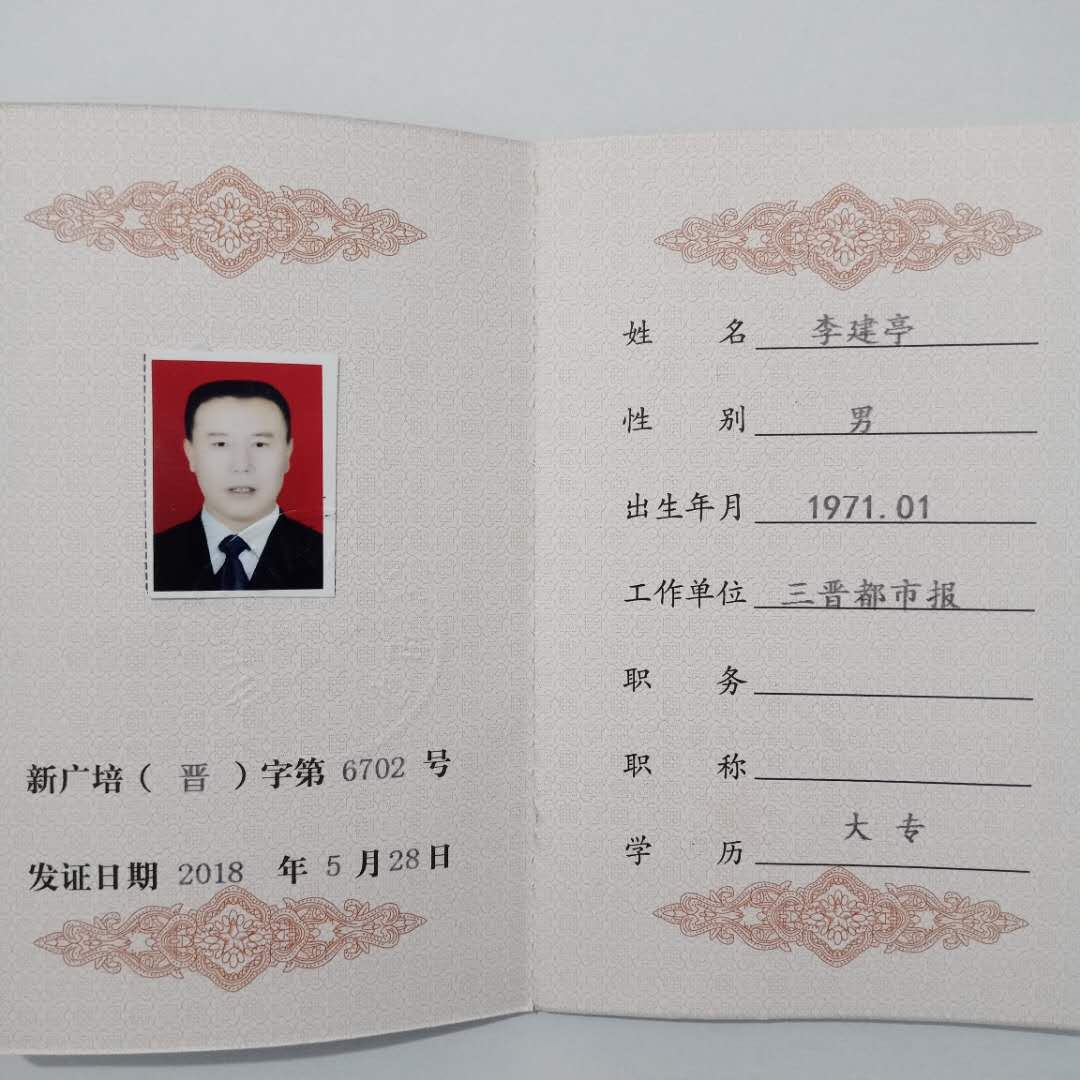 新广培（晋）字第 6702 号
发证日期 2018 年 5 月 28 日
姓 名 李建亭
性 别 男
出生年月 1971.01
工作单位 三晋都市报
职 务
职 称
学 历 大 专